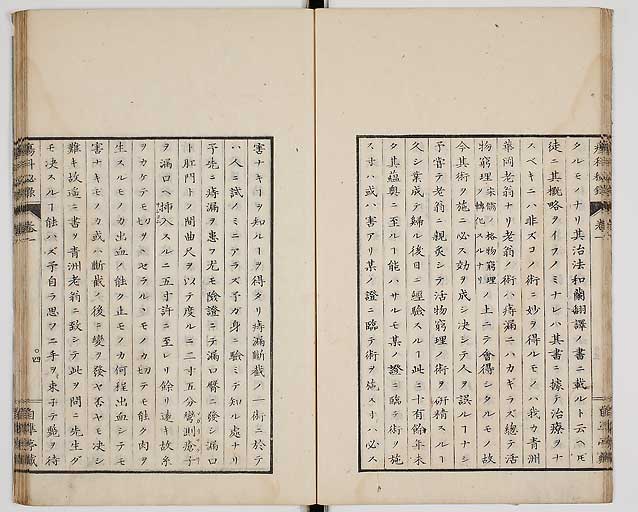 タルモノナリ其治法和蘭翻譯ノ書ニ載ルト云ヘ𪜈
徒ニ其概略ヲイフノミナレハ其書ニ據テ治療ヲナ
スベキニハ非ズコノ術ニ妙ヲ得ルモノハ我カ青洲
華岡老翁ナリ老翁ノ術ハ痔漏ニハカギラズ總テ活
物窮理ノ上ニテ會得シタルモノ故
今其術ヲ施ニ必ス効ヲ成シ决シテ人ヲ誤ルーナシ
予甞テ老翁ニ親炙シテ活物窮理ノ術ヲ研精スルー
久シ業成テ歸ル後日ニ經驗スルー此ニ十有餘年未
タ其蘊奥ニ至ルー能ハサルモ某ノ證ニ臨テ術ヲ施
スヿハ或ハ害アリ某ノ證ニ臨テ術ヲ施スヿハ必ス
害ナキーヲ知ルーヲ得タリ痔漏斷截ノ一術ニ於テ
ハ人ニ試ノミニアラズ予カ身ニ驗ミテ知ル處ナリ
予先ニ痔漏ヲ患フ尤モ險證ニテ漏口臀ニ發シ漏口
ト肛門トノ間曲尺ヲ以テ度ルニ二寸五分彎則瘡子
ヲ漏口ヘ挿入スルニ五寸許ニ至レリ餘リ遠キ故糸
ヲカケテモ切ヲハセラルヽモノカ切テモ能ク肉ヲ
生スルモノカ出血ノ能ク止モノカ何程出血シテモ
害ナキモノカ或ハ斷截ノ後ニ變ヲ發ヤ否ヤモ决シ
難キ故遙ニ書ヲ青洲老翁ニ致シテ此ヲ問ニ先生グ
モ决スルー能ハズ予自ラ思フニ手ヲ束子テ斃ヲ待
瘍科秘錄 卷一
四